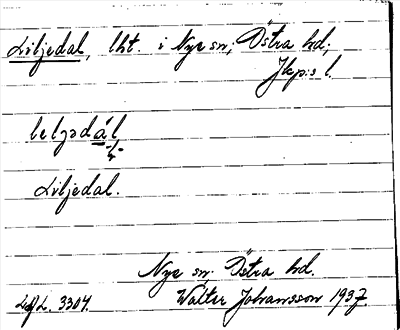 Liljedal, lht. i Nye sn; Östra hd;
Jkp:s l.
leljədál
Liljedal.
Nye sn. Östra hd.
Walter Johansson 1937.
3304.